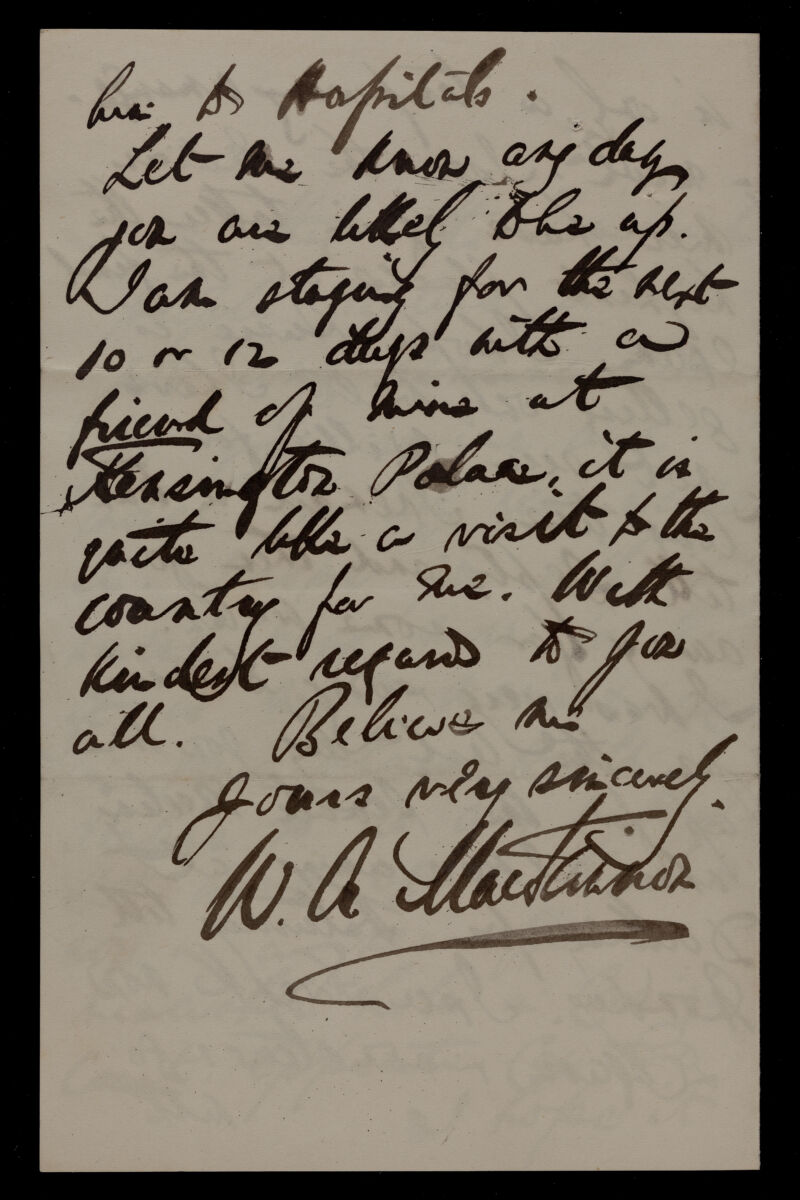 him to Hospitals.
Let me know any day
you are likely to be up.
I am staying for the next
10 or 12 days with a
friend of mine at
Kensington Palace, it is
quite like a visit to the
country for me. With
kindest regards to you
all. Believe me
Yours very sincerely
W. A Mackinnon